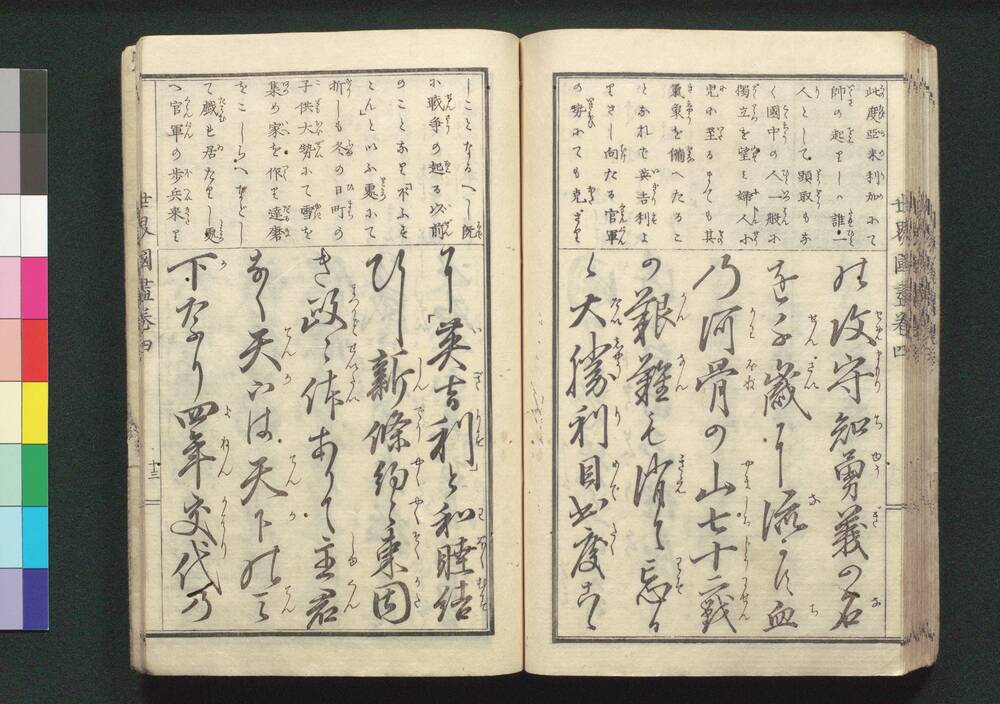 世界國盡巻四
此度亞米利加にて
帥の起りしハ誰一
人として頭取もな
く國中の人一般に
獨立を望ミ婦人小
児に至るまでも其
氣象を備へたるこ
となれバ英吉利よ
りさし向たる官軍
の勢にても克ます
乃攻守知勇義の名
を千歳に流す血
乃河骨の山七十二戦
の艱難も消て忘る
ゝ大勝利目出度こゝ
しことなるべし既
に戦争の起る以前
のことなり
とん」といふ處にて
折しも冬の日町の
子供大勢にて雪を
集め家を作り達磨
をこしらへなどし
て戯れ居たりし處
へ官軍の歩兵来り
に「英吉利」と和睦結
びし新條約々束固
き政々体ありて主君
なく天下は天下の天
下なり四年交代乃
世界國盡巻四
十三